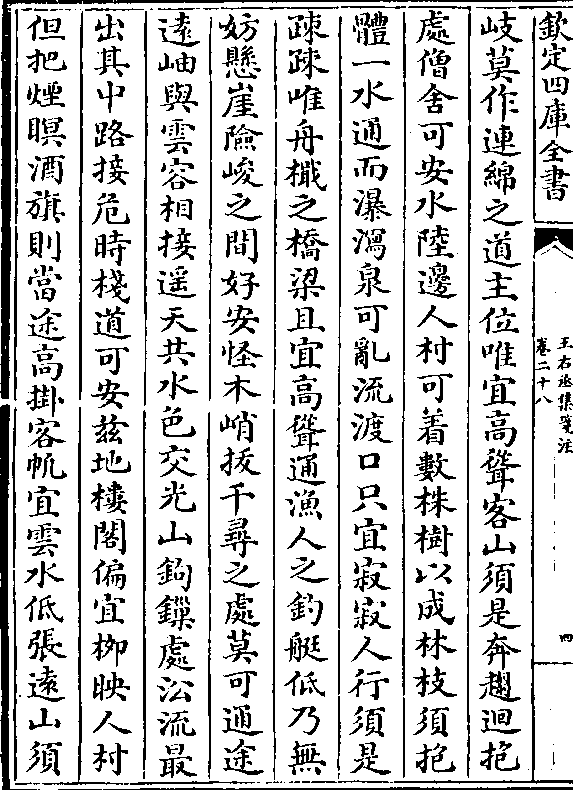 欽定四庫全書
王右丞集箋注
卷二十八
四
岐莫作連綿之道主位唯宜高聳客山須是奔趨迴抱
處僧舍可安水陸邊人村可着數株樹以成林枝須抱
體一水通而瀑瀉泉可亂流渡口只宜寂寂人行須是
疎疎唯舟檝之橋梁且宜高聳通漁人之釣艇低乃無
妨懸崖險峻之間好安怪木峭拔千尋之處莫可通途
遠岫與雲容相接遥天共水色交光山鉤鏁處沿流最
出其中路接危時棧道可安兹地樓閣偏宜栁映人村
但把煙瞑酒旗則當途高掛客帆宜雲水低張遠山須